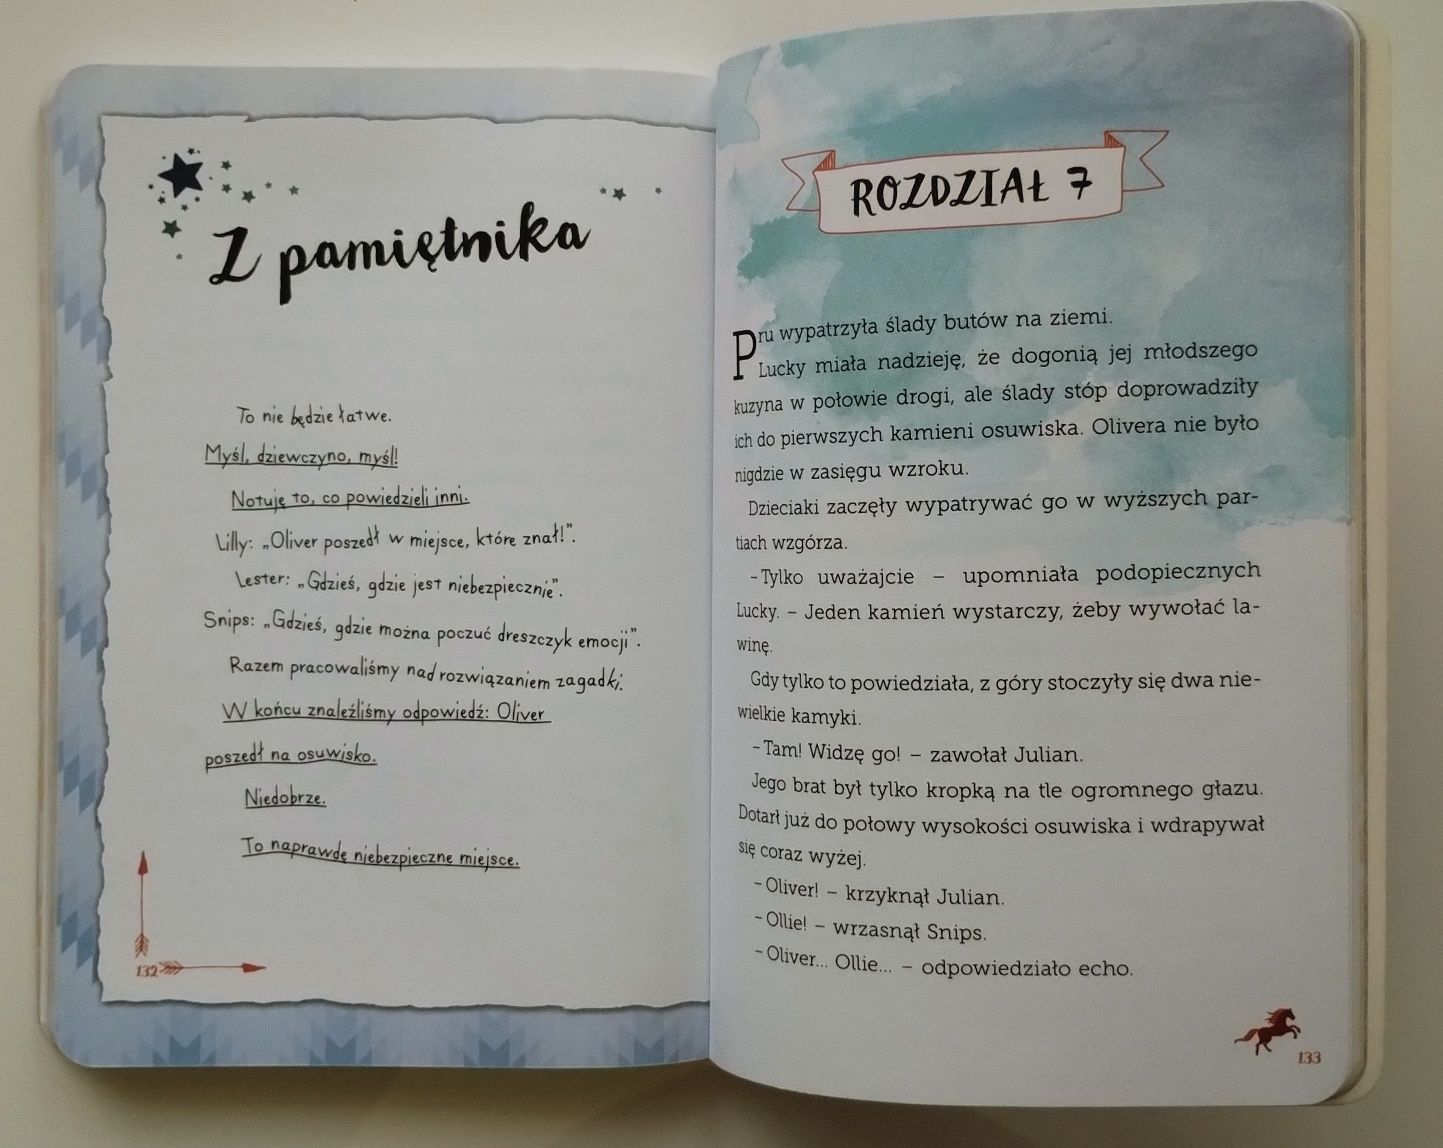 Z pamiętnika
To nie będzie łatwe.
Myśl, dziewczyno, myśl!
Notuję to, co powiedzieli inni.
Lilly: „Oliver poszedł w miejsce, które znał!”.
Lester: „Gdzieś, gdzie jest niebezpiecznie”.
Snips: „Gdzieś, gdzie można poczuć dreszczyk emocji”.
Razem pracowaliśmy nad rozwiązaniem zagadki.
W końcu znaleźliśmy odpowiedź: Oliver
poszedł na osuwisko.
Niedobrze.
To naprawdę niebezpieczne miejsce.
132
ROZDZIAŁ 7
Pru wypatrzyła ślady butów na ziemi.
Lucky miała nadzieję, że dogonią jej młodszego
kuzyna w połowie drogi, ale ślady stóp doprowadziły
ich do pierwszych kamieni osuwiska. Olivera nie było
nigdzie w zasięgu wzroku.
Dzieciaki zaczęły wypatrywać go w wyższych par-
tiach wzgórza.
– Tylko uważajcie – upomniała podopiecznych
Lucky. – Jeden kamień wystarczy, żeby wywołać la-
winę.
Gdy tylko to powiedziała, z góry stoczyły się dwa nie-
wielkie kamyki.
– Tam! Widzę go! – zawołał Julian.
Jego brat był tylko kropką na tle ogromnego głazu.
Dotarł już do połowy wysokości osuwiska i wdrapywał
się coraz wyżej.
– Oliver! – krzyknął Julian.
– Ollie! – wrzasnął Snips.
– Oliver... Ollie... – odpowiedziało echo.
133